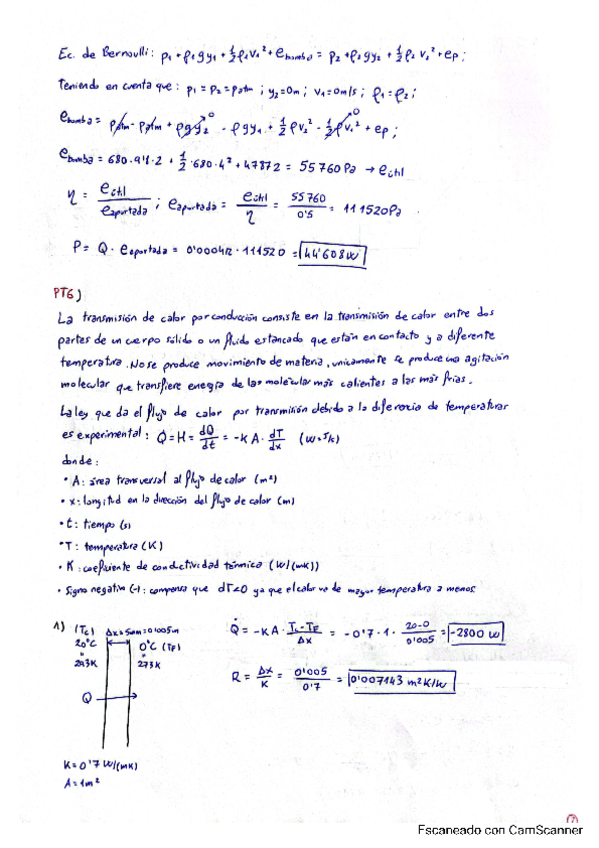 Ec. de Bernoulli: p₁ + ρ₁gy₁ + ½ρ₁v₁² + e bomba = p₂ + ρ₂gy₂ + ½ρ₂v₂² + ep;
Teniendo en cuenta que: p₁ = p₂ = patm ; y₂=0m ; v₁=0m/s ; ρ₁ = ρ₂ ;
e bomba = patm - patm + ρgy₂ 0 - ρgy₁ + ½ρv₂² - ½ρv₁² 0 + ep ;
e bomba = 680·9'8·2 + ½·680·4² + 47872 = 55760 Pa → e útil
η = e útil / e aportada ; e aportada = e útil / η = 55760 / 0'5 = 111520Pa
P = Q · e aportada = 0'0004 · 111520 = 44'608W
PT6)
La transmisión de calor por conducción consiste en la transmisión de calor entre dos
partes de un cuerpo sólido o un fluido estancado que están en contacto y a diferente
temperatura. No se produce movimiento de materia, unicamente se produce una agitación
molecular que transfiere energía de las moléculas más calientes a las más frías.
La ley que da el flujo de calor por transmisión debido a la diferencia de temperaturas
es experimental: Q̇ = H = dQ/dt = -KA · dT/dx (W=J/s)
donde:
· A: área transversal al flujo de calor (m²)
· x: longitud en la dirección del flujo de calor (m)
· t: tiempo (s)
· T: temperatura (K)
· K: coeficiente de conductividad térmica (W/(mK))
· Signo negativo (-): compensa que dT<0 ya que el calor va de mayor temperatura a menos
1) (Tc) Δx=5mm=0'005m
20°C 0°C (TF)
293K 273K
Q
K=0'7 W/(mK)
A=1m²
Q̇ = -KA · Tc-TF / Δx = -0'7·1· 20-0 / 0'005 = -2800 W
R = Δx / K = 0'005 / 0'7 = 0'007143 m²K/W
Escaneado con CamScanner